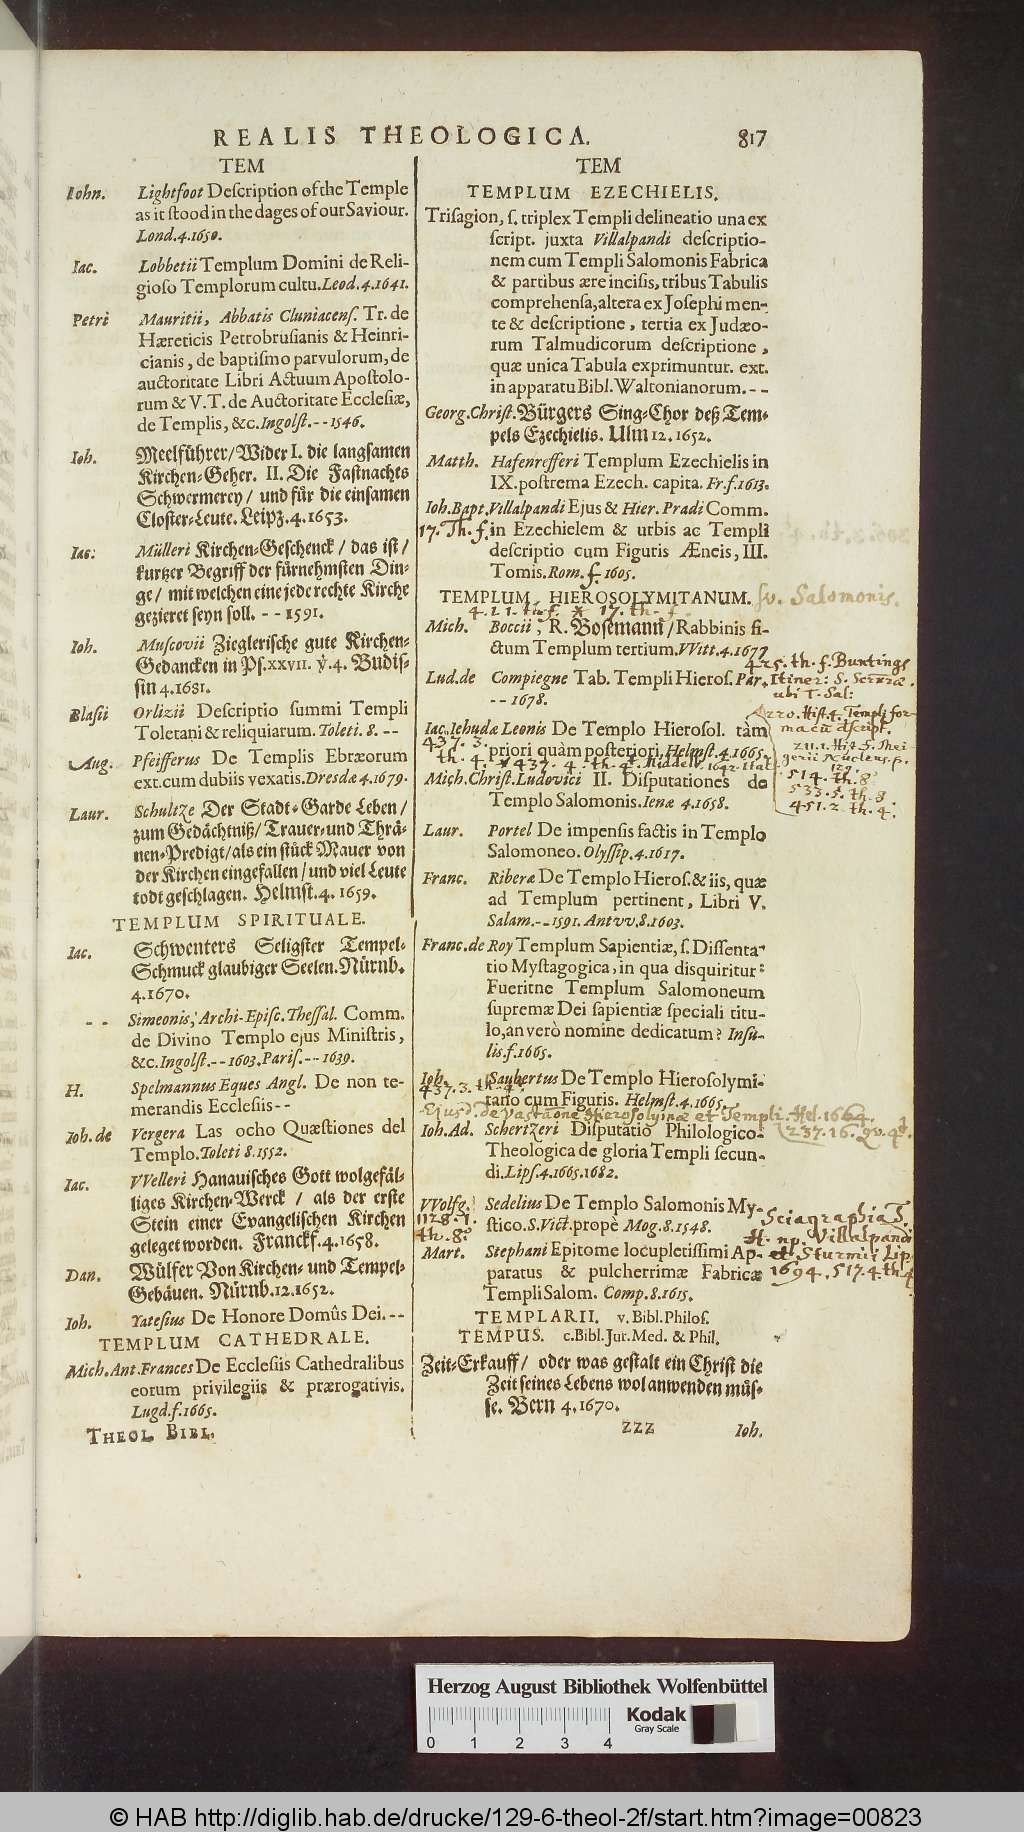 REALIS THEOLOGICA. 817
TEM
Iohn. Lightfoot Deſcription of the Temple
as it ſtood in the dages of our Saviour.
Lond. 4. 1650.
Iac. Lobbetii Templum Domini de Reli-
gioſo Templorum cultu. Leod. 4. 1641.
Petri Mauritii, Abbatis Cluniacenſ. Tr. de
Hæreticis Petrobruſianis & Heinri-
cianis, de baptiſmo parvulorum, de
auctoritate Libri Actuum Apoſtolo-
rum & V. T. de Auctoritate Eccleſiæ,
de Templis, &c. Ingolſt. - - 1546.
Ioh. Meelführer/ Wider I. die langſamen
Kirchen-Geher. II. Die Faſtnachts
Schwermerey/ und für die einſamen
Cloſter-Leute. Leipz. 4. 1653.
Iac. Mülleri Kirchen-Geſchenck/ das iſt/
kurtzer Begriff der fürnehmſten Din-
ge/ mit welchen eine jede rechte Kirche
gezieret ſeyn ſoll. - - 1591.
Ioh. Muſcovii Zieglerische gute Kirchen-
Gedancken in Pſ. XXVII. ℣. 4. Budiſ-
ſin 4. 1681.
Blaſii Orlizii Deſcriptio ſummi Templi
Toletani & reliquiarum. Toleti. 8. - -
Aug. Pfeifferus De Templis Ebræorum
ext. cum dubiis vexatis. Dresdæ 4. 1679.
Laur. Schultze Der Stadt-Garde Leben/
zum Gedächtniß/ Trauer- und Thrä-
nen-Predigt/ als ein ſtück Mauer von
der Kirchen eingefallen/ und viel Leute
todt geſchlagen. Helmſt. 4. 1659.
TEMPLUM SPIRITUALE.
Iac. Schwenters Seligſter Tempel-
Schmuck glaubiger Seelen. Nürnb.
4. 1670.
- - Simeonis, Archi-Epiſc. Theſſal. Comm.
de Divino Templo ejus Miniſtris,
&c. Ingolſt. - - 1603. Pariſ. - - 1639.
H. Spelmannus Eques Angl. De non te-
merandis Eccleſiis - -
Ioh. de Vergera Las ocho Quæſtiones del
Templo. Toleti 8. 1552.
Iac. VVelleri Hanauiſches Gott wolgefäl-
liges Kirchen-Werck / als der erſte
Stein einer Evangeliſchen Kirchen
geleget worden. Franckf. 4. 1658.
Dan. Wülfer Von Kirchen- und Tempel-
Gebäuen. Nürnb. 12. 1652.
Ioh. Yateſius De Honore Domûs Dei. - -
TEMPLUM CATHEDRALE.
Mich. Ant. Frances De Eccleſiis Cathedralibus
eorum privilegiis & prærogativis.
Lugd. f. 1665.
THEOL. BIBL.
TEM
TEMPLUM EZECHIELIS.
Triſagion, ſ. triplex Templi delineatio una ex
ſcript. juxta Villalpandi deſcriptio-
nem cum Templi Salomonis Fabrica
& partibus ære inciſis, tribus Tabulis
comprehenſa, altera ex Joſephi men-
te & deſcriptione, tertia ex Judæo-
rum Talmudicorum deſcriptione,
quæ unica Tabula exprimuntur. ext.
in apparatu Bibl. Waltonianorum. - -
Georg. Chriſt. Bürgers Sing-Chor deß Tem-
pels Ezechielis. Ulm 12. 1652.
Matth. Hafenrefferi Templum Ezechielis in
IX. poſtrema Ezech. capita. Fr. f. 1613.
Ioh. Bapt. Villalpandi Ejus & Hier. Pradi Comm.
17. Th. f. in Ezechielem & urbis ac Templi
deſcriptio cum Figuris Æneis, III.
Tomis. Rom. f. 1605.
TEMPLUM HIEROSOLYMITANUM. ſv. Salomonis.
4. 2 1. th. f. * 17. th. f.
Mich. Boccii, R. Boſemann/ Rabbinis fi-
ctum Templum tertium. VVitt. 4. 1677
425. th. f. Buntings
Lud. de Compiegne Tab. Templi Hieroſ. Par. Itiner: S. Scrræ.
- - 1678. ubi T. Sal:
Iac. Iehudæ Leonis De Templo Hieroſol. tàm
437. 3. priori quàm poſteriori. Helmſt. 4. 1665.
th. 4. * 437. 4. th. 4. Middelb. 1642.
Mich. Chriſt. Ludovici II. Diſputationes de
Templo Salomonis. Ienæ 4. 1658.
514. th. 8
533. 5. th. 9.
451. 2. th. 4.
Laur. Portel De impenſis factis in Templo
Salomoneo. Olyſſip. 4. 1617.
Franc. Riberæ De Templo Hieroſ. & iis, quæ
ad Templum pertinent, Libri V.
Salam. - - 1591. Antvv. 8. 1603.
Franc. de Roy Templum Sapientiæ, ſ. Diſſerta-
tio Myſtagogica, in qua disquiritur:
Fueritne Templum Salomoneum
ſupremæ Dei ſapientiæ ſpeciali titu-
lo, an verò nomine dedicatum? Inſu-
lis. f. 1665.
Ioh. Saubertus De Templo Hieroſolymi-
437. 3. th. 4. tano cum Figuris. Helmſt. 4. 1665.
Ejusd. de vastatione Hierosolymæ et Templi. Hel. 1664.
237. 16. qv. 4.
Ioh. Ad. Schertzeri Diſputatio Philologico-
Theologica de gloria Templi ſecun-
di. Lipſ. 4. 1665. 1682.
VVolfg. Sedelius De Templo Salomonis My-
1128. 1. ſtico. S. Vict. propè Mog. 8. 1548.
th. 8.
Sciagraphia T.
H. np. Villalpandi
Mart. Stephani Epitome locupletiſſimi Ap- et Sturmii Lip
paratus & pulcherrimæ Fabricæ 1694. 517. 4. th. 4
Templi Salom. Comp. 8. 1615.
TEMPLARII. v. Bibl. Philoſ.
TEMPUS. c. Bibl. Jur. Med. & Phil.
Zeit-Erkauff/ oder was geſtalt ein Chriſt die
Zeit ſeines Lebens wol anwenden müſ-
ſe. Bern 4. 1670.
ZZZ Ioh.
Herzog August Bibliothek Wolfenbüttel
0 1 2 3 4
Kodak
Gray Scale
© HAB http://diglib.hab.de/drucke/129-6-theol-2f/start.htm?image=00823